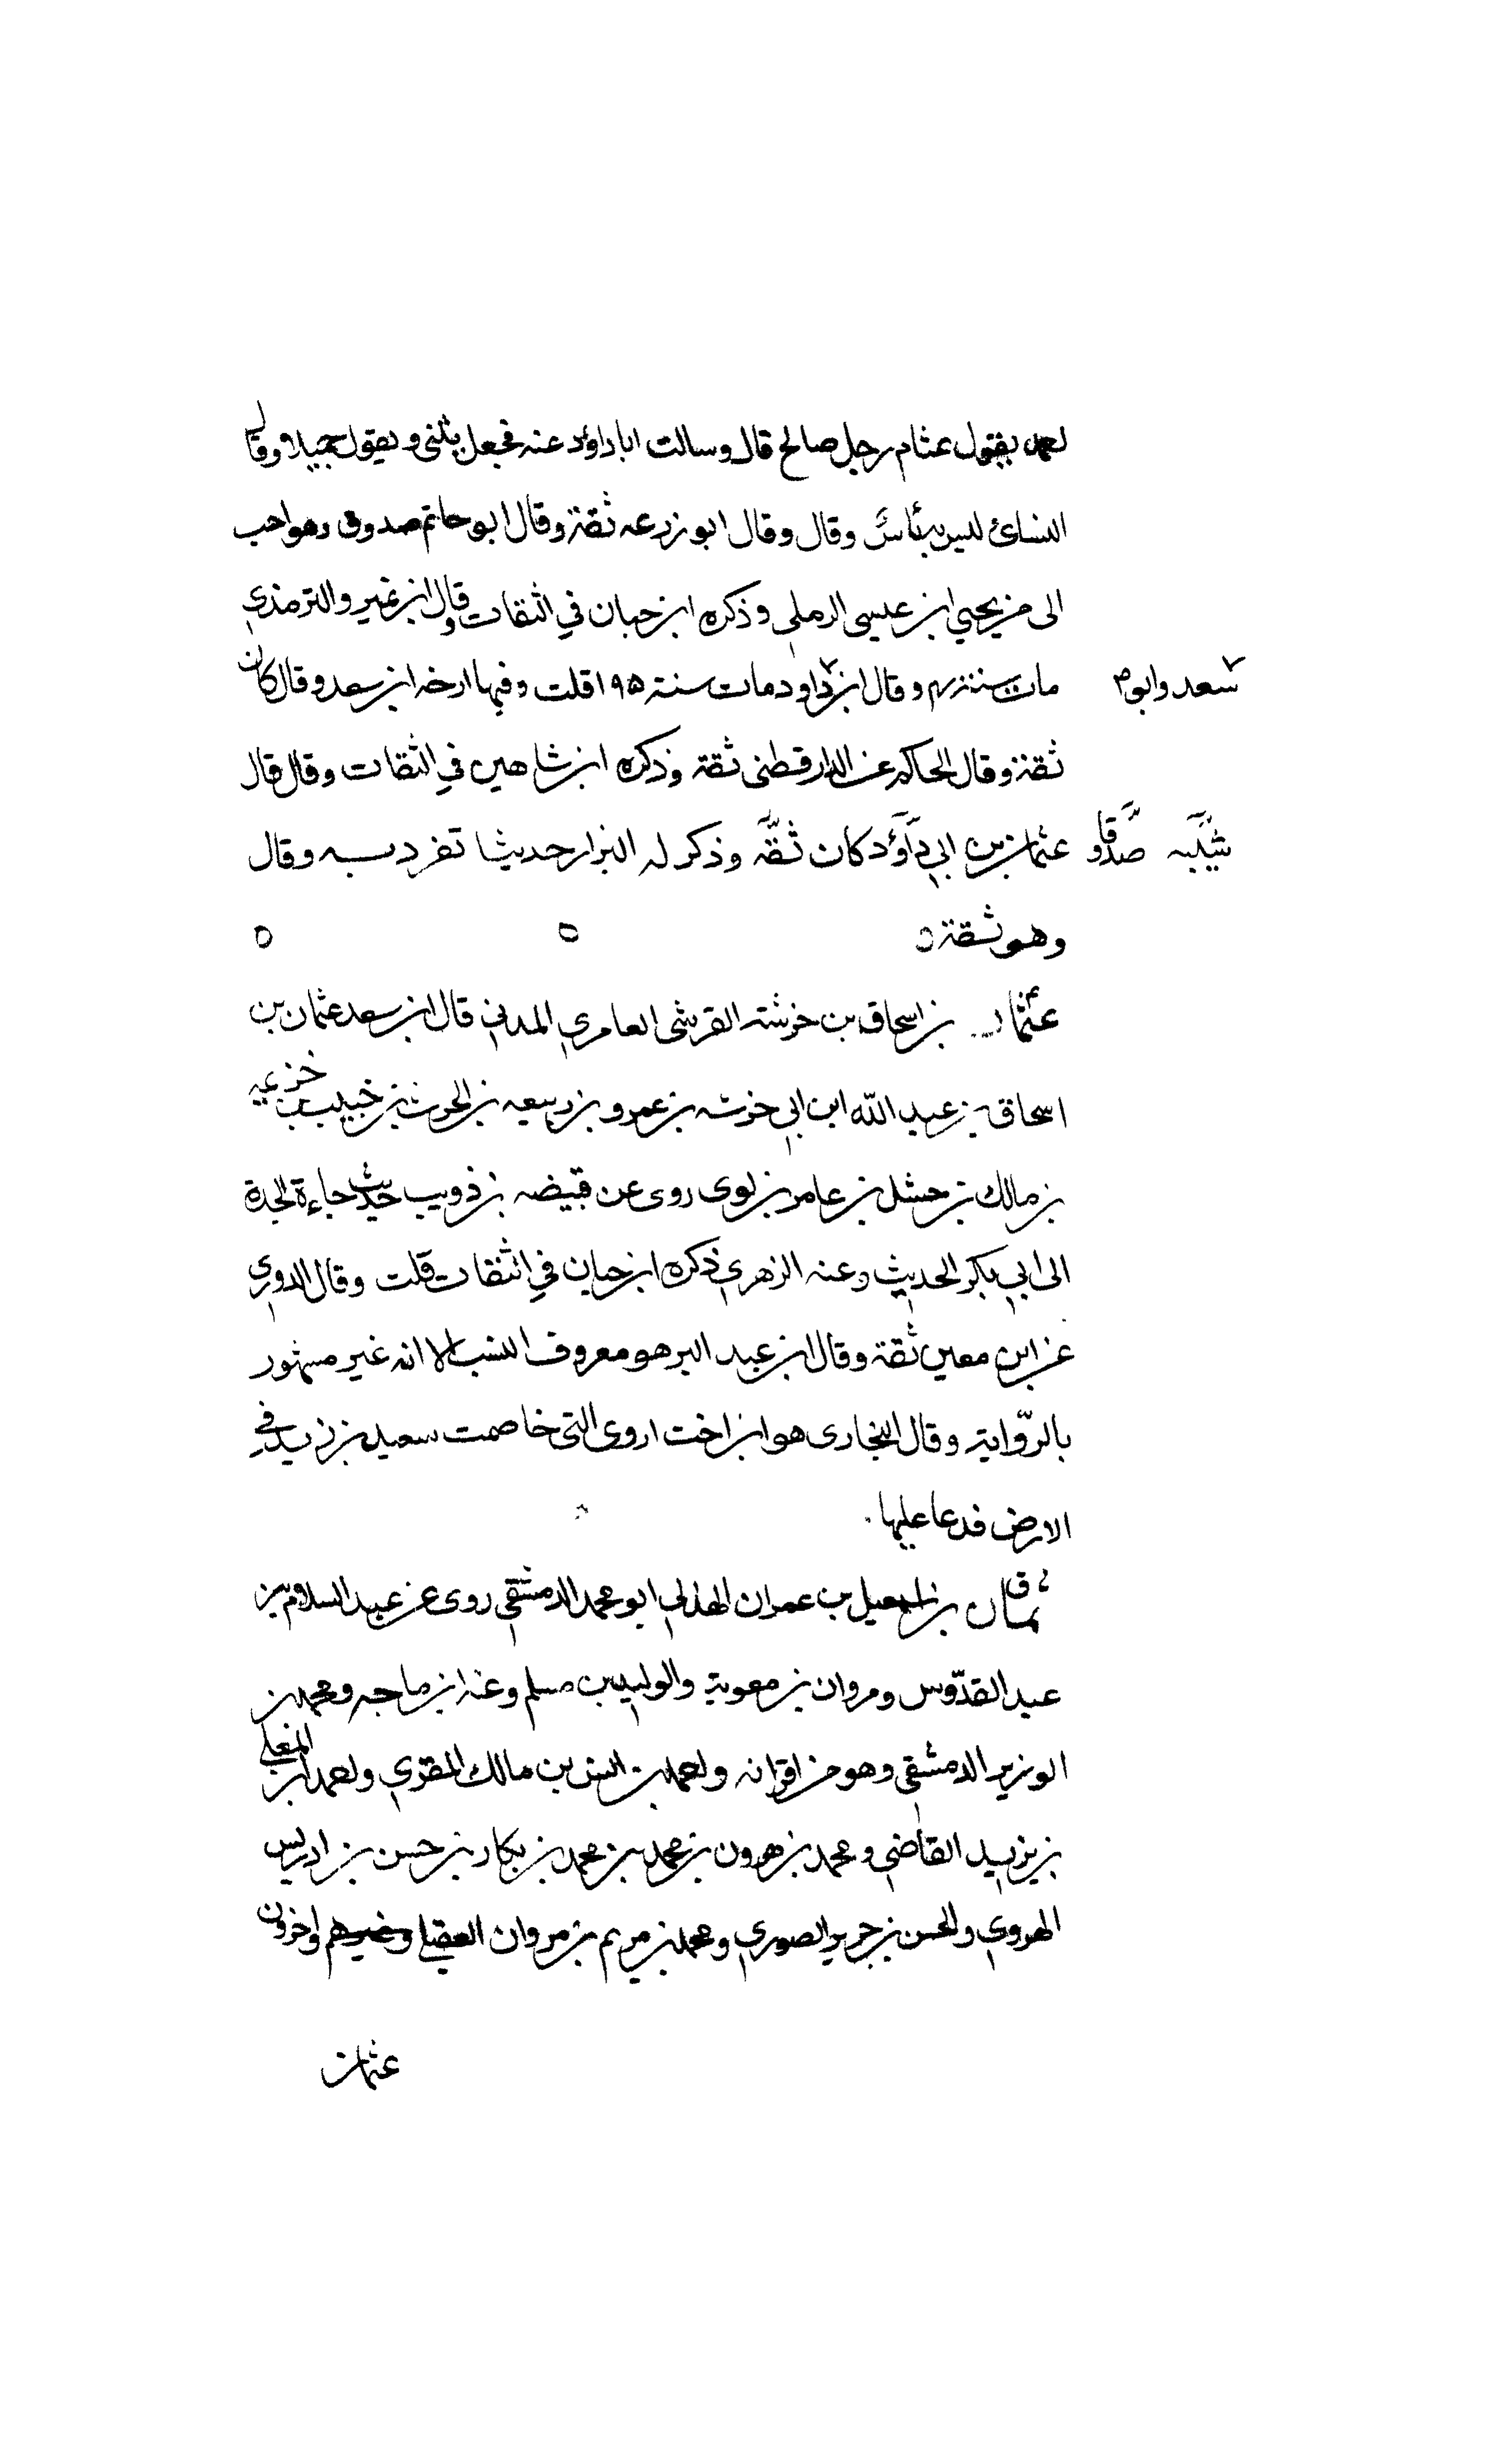 احمد يقول عثام رجل صالح قال وسالت ابا داؤد عنه فجعل يثنى ويقول جميلا وقال
النسائ ليس به باس وقال وقال ابو زرعه ثقة وقال ابو حاتم صدوق وهو احب
الى من يحيي ابن عيسى الرملي وذكره ابن حبان في الثقات وقال ابن نمير والترمذي
مات سنة وقال ابن داود مات سنة ۱۹۵ قلت وفيها ارخه ابن سعد وقال كان
سعد وابو
ثقة وقال الحاكم عن الدارقطنى ثقة وذكره ابن شاهين في الثقات وقال قال
عثمان بن ابي داؤد كان ثقة وذكر له البزار حديثا تفرد به وقال
شيبه صدوقا
وهو ثقة
عثمان بن اسحاق بن خرشة القرشى العامري المدني قال ابن سعد عثمان بن
اسحاق بن عبد الله ابن ابي خرشه بن عمرو بن ربيعه بن الحرث بن خبيب بن
بن مالك بن حشل بن عامر بن لوى روى عن قبيضه بن ذويب حديث جاءة الجدة
الى ابي بكر الحديث وعنه الزهري ذكره ابن حبان في الثقات قلت وقال الدوري
عن ابن معين ثقة وقال ابن عبد البر هو معروف النسب الا انه غير مشهور
بالرّواية وقال البخارى هو ابن اخت اروى التى خاصمت سعيد بن زيد في
الارض فدعا عليها
ق عثمان بن اسمعيل بن عمران الهذلي ابو محمد الدمشقي روى عن عبد السلام بن
عبد القدّوس ومروان بن معوية والوليد بن مسلم وعنه ابن ماجه ومحمد بن
الوزير الدمشقي وهو من اقرانه واحمد بن انس بن مالك المقري واحمد ابن المعلي
بن يزيد القاضي ومحمد بن هرون بن محمد بن محمد بن بكار بن حسن بن ادريس
الهروي والحسن بن جرير الصوري ومحمد بن مريم بن مروان العقيلي وغيرهم واخرون
عثمان